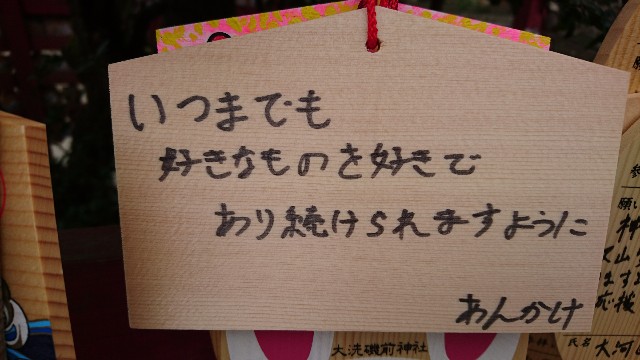 いつまでも
好きなものを好きで
あり続けられますように
あんかけ
大洗磯前神社
氏名 大河